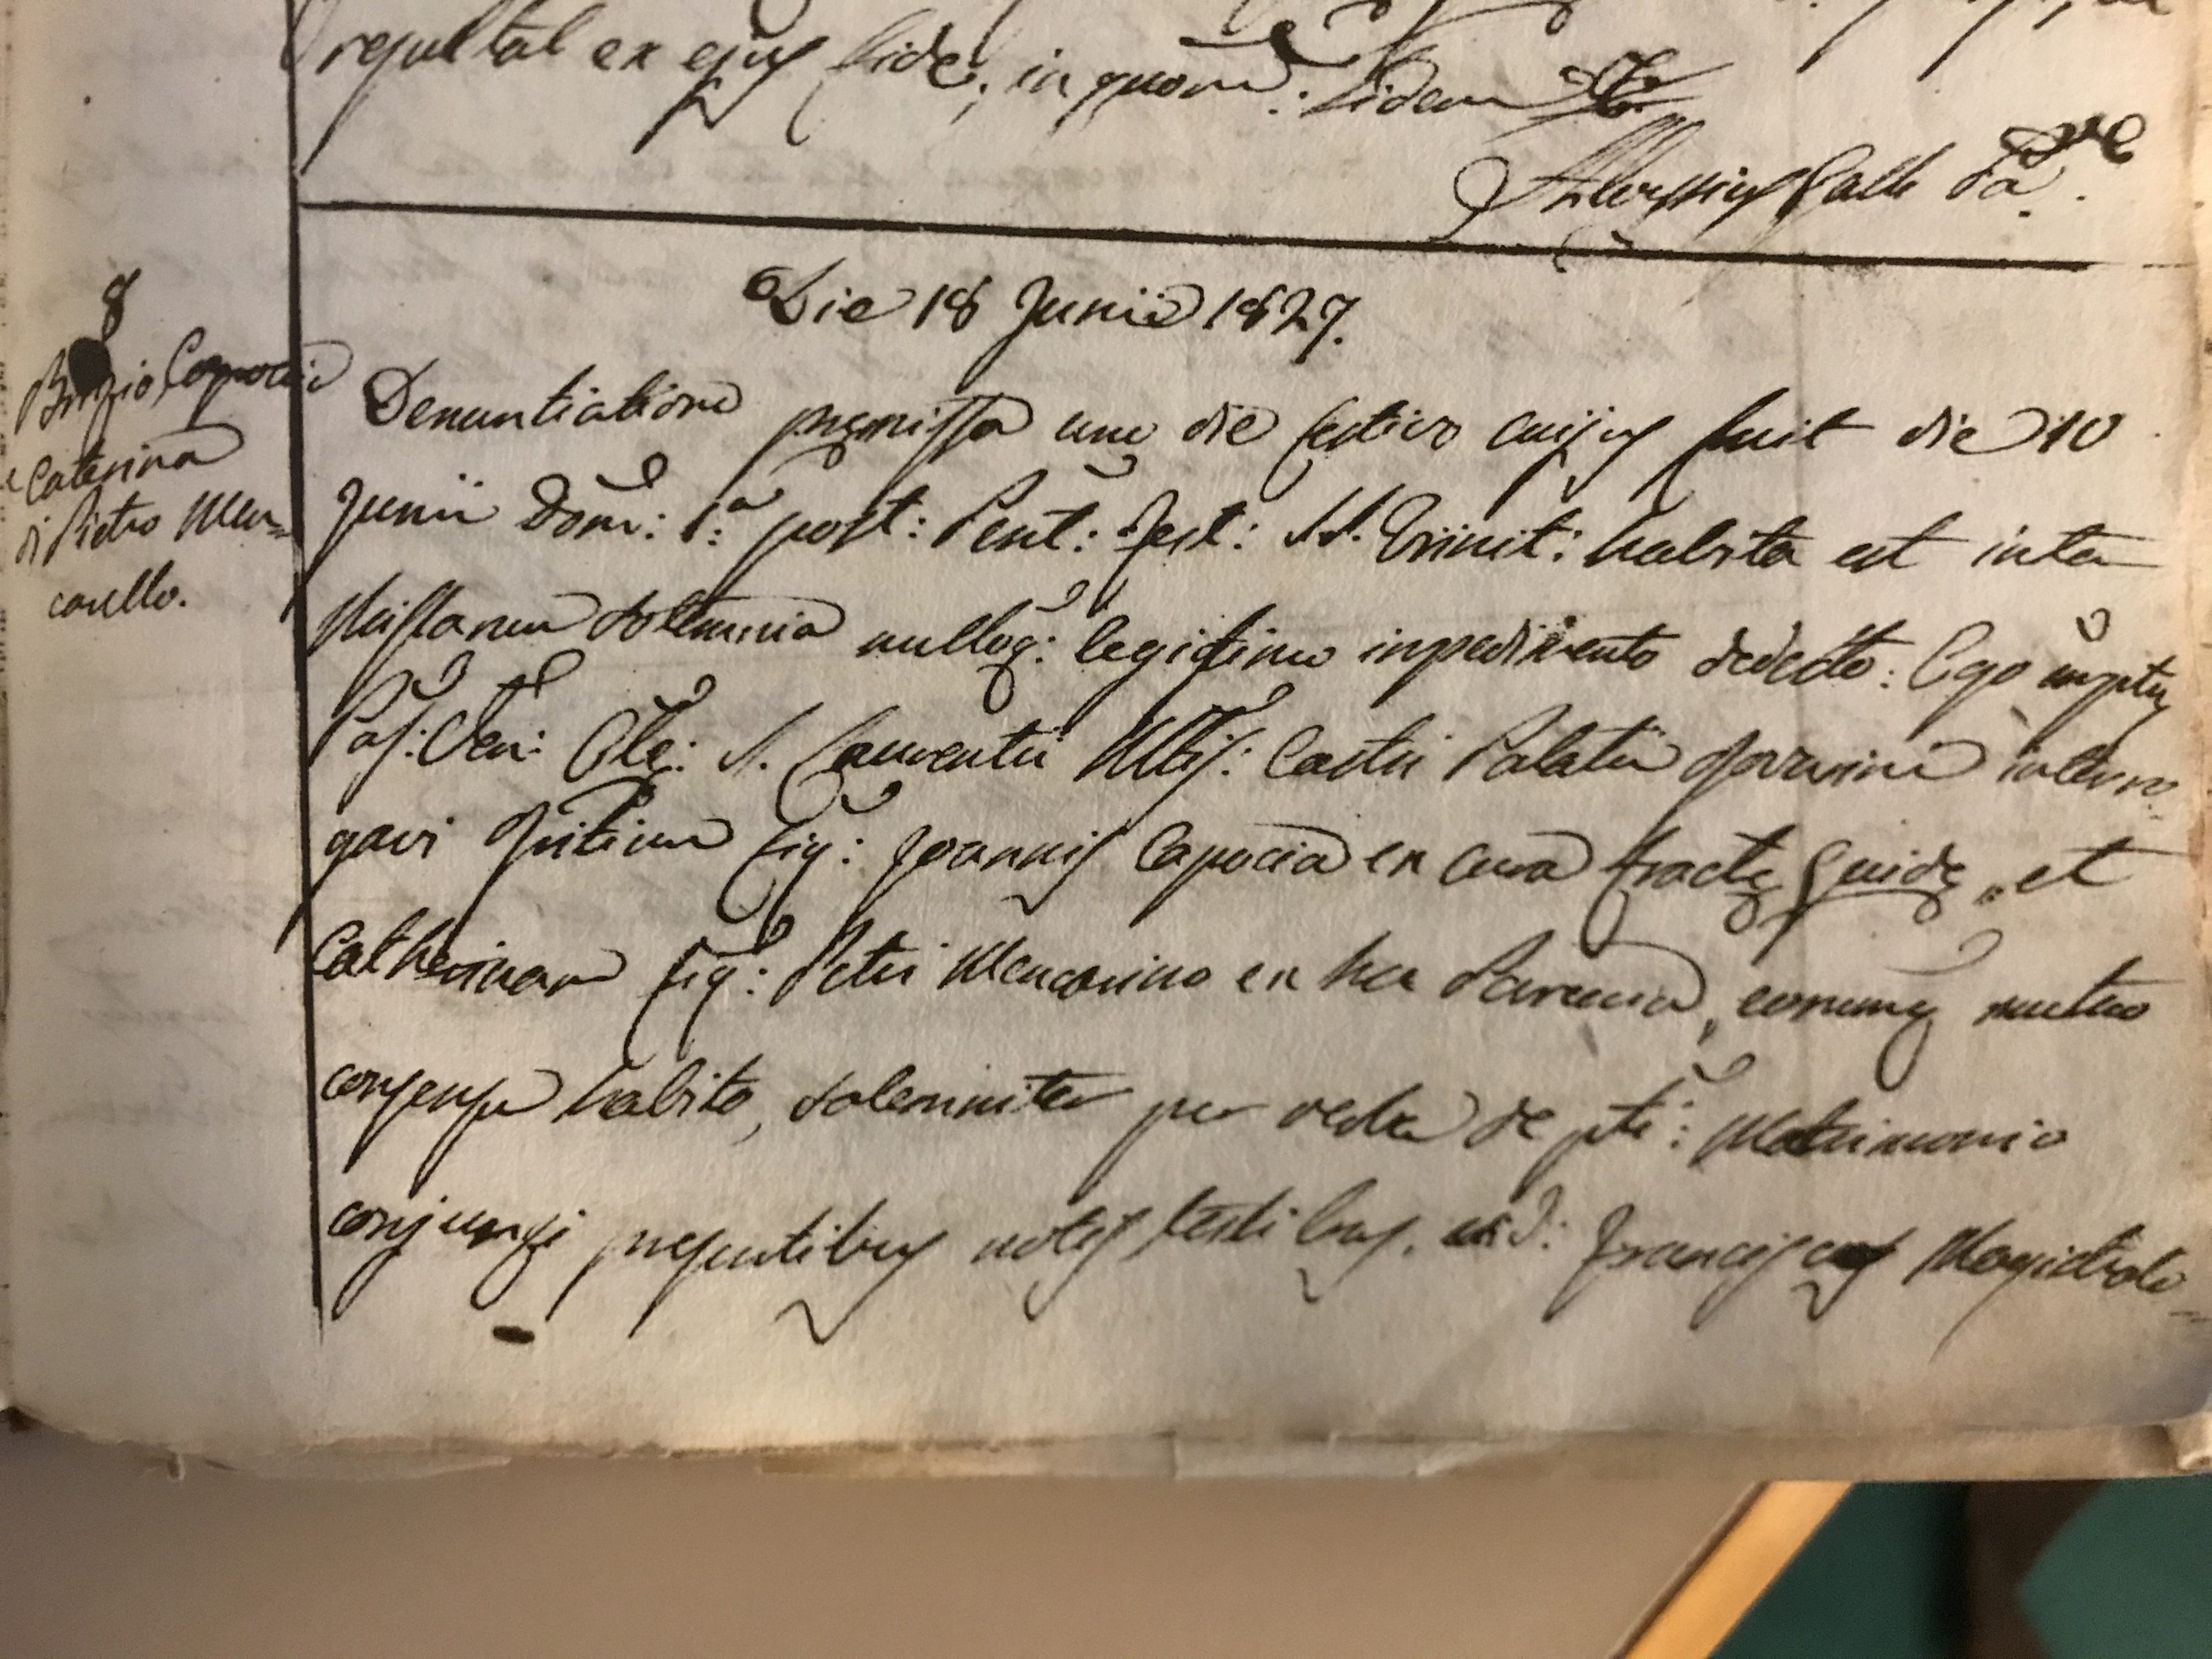 resultat ex ejus fide; in quorũ: fidem
Die 18 Junii 1827.
8
Brizio Capoccia
e Caterina
di Pietro Men=
carello.
Denuntiatione premissa uno die festivo cuijus fuit die 10
Junii Dom: 1:a post: Pent: Fest: SS. Trinit: habita est inter
Missarum solemnia nulloq: legitimo inpedimento detecto: Ego
Par: Ven: Ecle: S. Laurentii Castri Palatii interro
gavi Britium fig: Joannis Capocia ex cura fractę Guidę, et
Catherinam fig: Petri Mencarino ex hac Parrecia, eorumq mutuo
consensu habito, solemniter per verba de pti: Matrimonio
conjunxi presentibus notis testibus. vid: Franciscus Magistrale=